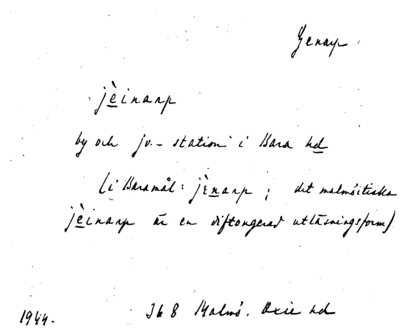 Genarp.
jèinarp
by och jv.-station i Bara hd
(i Baramål: jènarp; det malmöitiska
jèinarp är en diftongerad utläsningsform)
1944. 368 Malmö. Oxie hd